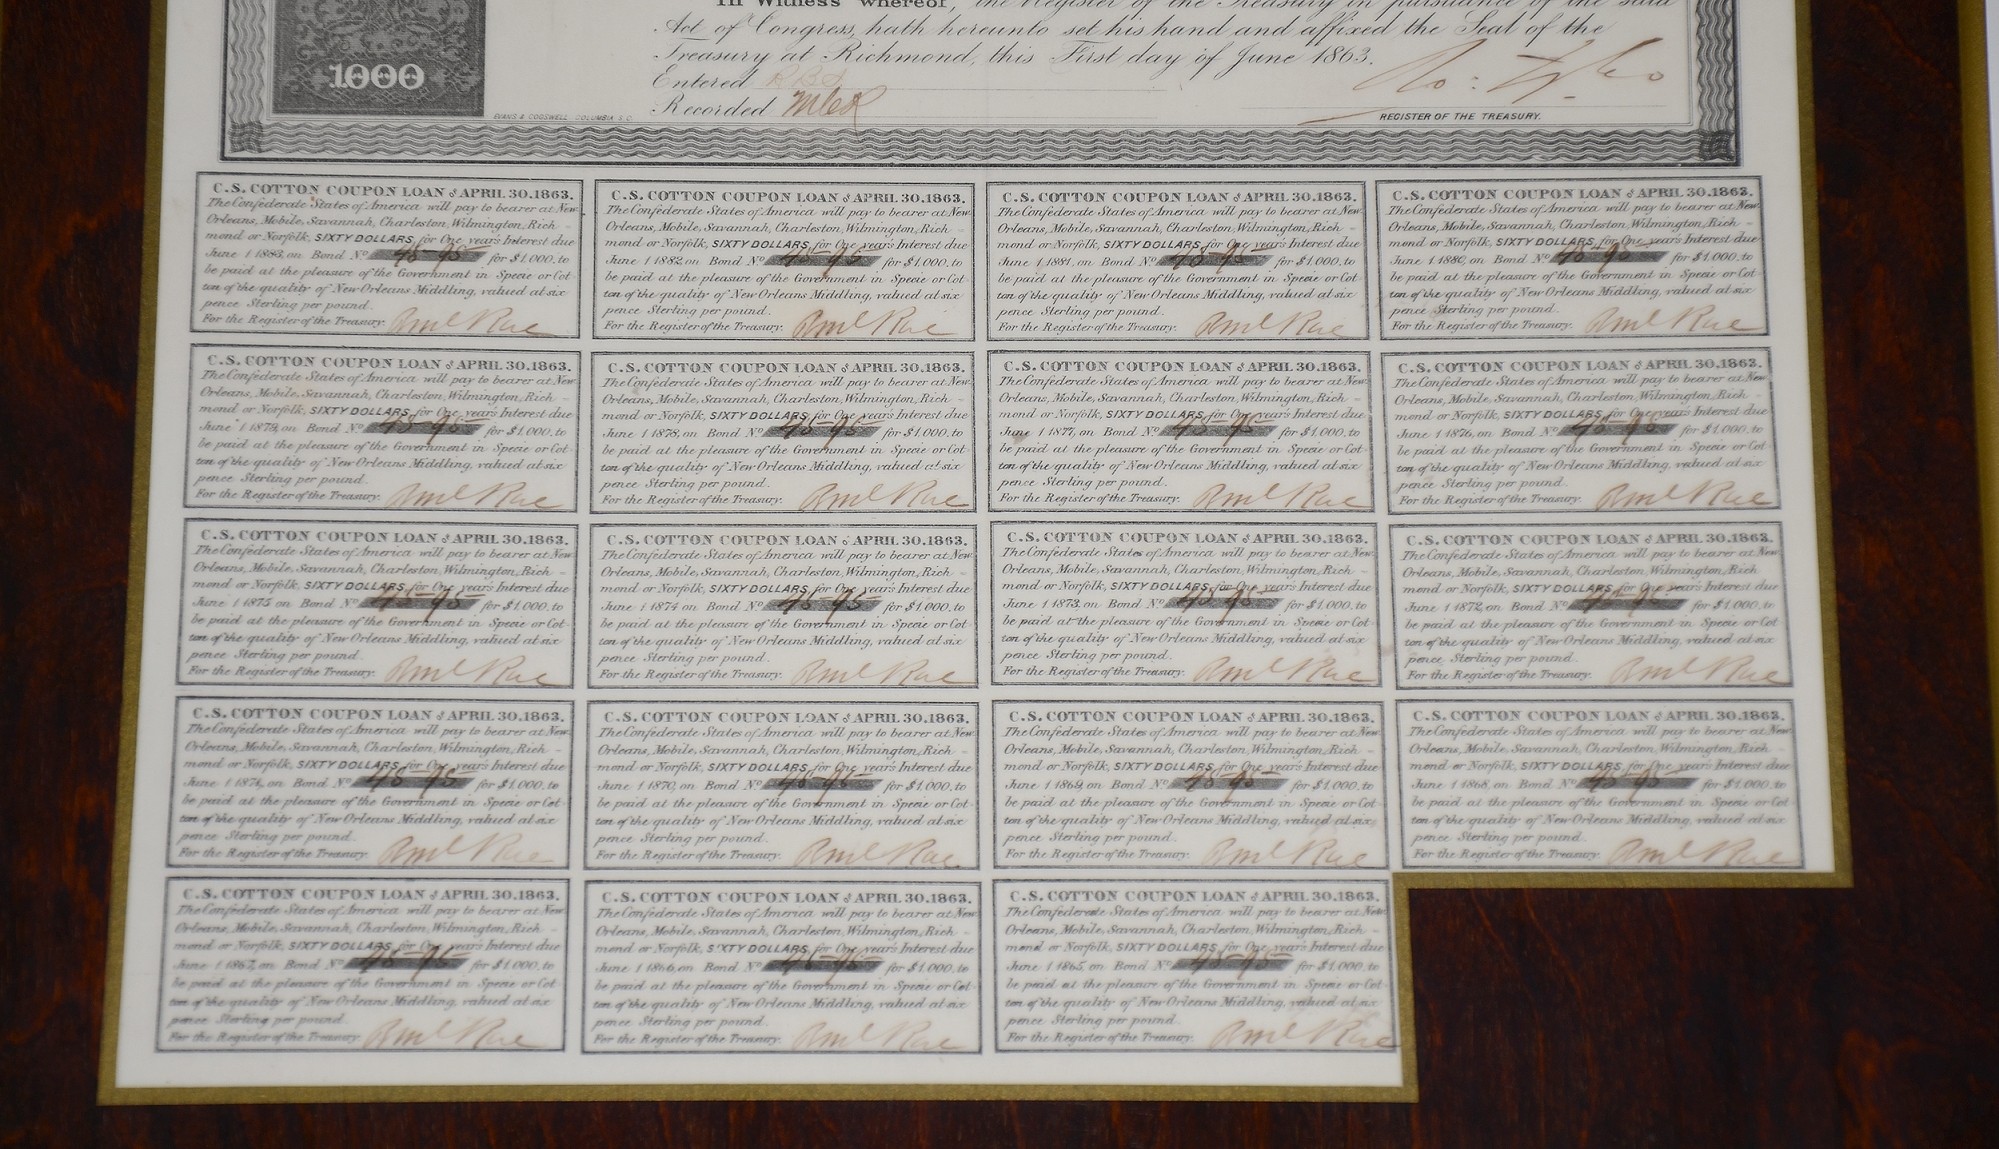 In Witness whereof, the Register of the Treasury in pursuance of the said
Act of Congress, hath hereunto set his hand and affixed the Seal of the
Treasury at Richmond, this First day of June 1863.
1000
Entered
Recorded
EVANS & COGSWELL COLUMBIA S.C.
REGISTER OF THE TREASURY.
C.S. COTTON COUPON LOAN of APRIL 30.1863.
The Confederate States of America will pay to bearer at New
Orleans, Mobile, Savannah, Charleston, Wilmington, Rich-
mond or Norfolk, SIXTY DOLLARS, for One year's Interest due
June 1 1883, on Bond No 4595 for $1,000, to
be paid at the pleasure of the Government in Specie or Cot-
ton of the quality of New Orleans Middling, valued at six
pence Sterling per pound.
For the Register of the Treasury.
C.S. COTTON COUPON LOAN of APRIL 30.1863.
The Confederate States of America will pay to bearer at New
Orleans, Mobile, Savannah, Charleston, Wilmington, Rich-
mond or Norfolk, SIXTY DOLLARS, for One year's Interest due
June 1 1882, on Bond No 4595 for $1,000, to
be paid at the pleasure of the Government in Specie or Cot-
ton of the quality of New Orleans Middling, valued at six
pence Sterling per pound.
For the Register of the Treasury.
C.S. COTTON COUPON LOAN of APRIL 30.1863.
The Confederate States of America will pay to bearer at New
Orleans, Mobile, Savannah, Charleston, Wilmington, Rich-
mond or Norfolk, SIXTY DOLLARS, for One year's Interest due
June 1 1881, on Bond No 4595 for $1,000, to
be paid at the pleasure of the Government in Specie or Cot-
ton of the quality of New Orleans Middling, valued at six
pence Sterling per pound.
For the Register of the Treasury.
C.S. COTTON COUPON LOAN of APRIL 30.1863.
The Confederate States of America will pay to bearer at New
Orleans, Mobile, Savannah, Charleston, Wilmington, Rich-
mond or Norfolk, SIXTY DOLLARS, for One year's Interest due
June 1 1880, on Bond No 4595 for $1,000, to
be paid at the pleasure of the Government in Specie or Cot-
ton of the quality of New Orleans Middling, valued at six
pence Sterling per pound.
For the Register of the Treasury.
C.S. COTTON COUPON LOAN of APRIL 30.1863.
The Confederate States of America will pay to bearer at New
Orleans, Mobile, Savannah, Charleston, Wilmington, Rich-
mond or Norfolk, SIXTY DOLLARS, for One year's Interest due
June 1 1879, on Bond No 4595 for $1,000, to
be paid at the pleasure of the Government in Specie or Cot-
ton of the quality of New Orleans Middling, valued at six
pence Sterling per pound.
For the Register of the Treasury.
C.S. COTTON COUPON LOAN of APRIL 30.1863.
The Confederate States of America will pay to bearer at New
Orleans, Mobile, Savannah, Charleston, Wilmington, Rich-
mond or Norfolk, SIXTY DOLLARS, for One year's Interest due
June 1 1878, on Bond No 4595 for $1,000, to
be paid at the pleasure of the Government in Specie or Cot-
ton of the quality of New Orleans Middling, valued at six
pence Sterling per pound.
For the Register of the Treasury.
C.S. COTTON COUPON LOAN of APRIL 30.1863.
The Confederate States of America will pay to bearer at New
Orleans, Mobile, Savannah, Charleston, Wilmington, Rich-
mond or Norfolk, SIXTY DOLLARS, for One year's Interest due
June 1 1877, on Bond No 4595 for $1,000, to
be paid at the pleasure of the Government in Specie or Cot-
ton of the quality of New Orleans Middling, valued at six
pence Sterling per pound.
For the Register of the Treasury.
C.S. COTTON COUPON LOAN of APRIL 30.1863.
The Confederate States of America will pay to bearer at New
Orleans, Mobile, Savannah, Charleston, Wilmington, Rich-
mond or Norfolk, SIXTY DOLLARS, for One year's Interest due
June 1 1876, on Bond No 4595 for $1,000, to
be paid at the pleasure of the Government in Specie or Cot-
ton of the quality of New Orleans Middling, valued at six
pence Sterling per pound.
For the Register of the Treasury.
C.S. COTTON COUPON LOAN of APRIL 30.1863.
The Confederate States of America will pay to bearer at New
Orleans, Mobile, Savannah, Charleston, Wilmington, Rich-
mond or Norfolk, SIXTY DOLLARS, for One year's Interest due
June 1 1875, on Bond No 4595 for $1,000, to
be paid at the pleasure of the Government in Specie or Cot-
ton of the quality of New Orleans Middling, valued at six
pence Sterling per pound.
For the Register of the Treasury.
C.S. COTTON COUPON LOAN of APRIL 30.1863.
The Confederate States of America will pay to bearer at New
Orleans, Mobile, Savannah, Charleston, Wilmington, Rich-
mond or Norfolk, SIXTY DOLLARS, for One year's Interest due
June 1 1874 on Bond No 4595 for $1,000, to
be paid at the pleasure of the Government in Specie or Cot-
ton of the quality of New Orleans Middling, valued at six
pence Sterling per pound.
For the Register of the Treasury.
C.S. COTTON COUPON LOAN of APRIL 30.1863.
The Confederate States of America will pay to bearer at New
Orleans, Mobile, Savannah, Charleston, Wilmington, Rich-
mond or Norfolk, SIXTY DOLLARS, for One year's Interest due
June 1 1873, on Bond No 4595 for $1,000, to
be paid at the pleasure of the Government in Specie or Cot-
ton of the quality of New Orleans Middling, valued at six
pence Sterling per pound.
For the Register of the Treasury.
C.S. COTTON COUPON LOAN of APRIL 30.1863.
The Confederate States of America will pay to bearer at New
Orleans, Mobile, Savannah, Charleston, Wilmington, Rich-
mond or Norfolk, SIXTY DOLLARS, for One year's Interest due
June 1 1872, on Bond No 4595 for $1,000, to
be paid at the pleasure of the Government in Specie or Cot-
ton of the quality of New Orleans Middling, valued at six
pence Sterling per pound.
For the Register of the Treasury.
C.S. COTTON COUPON LOAN of APRIL 30.1863.
The Confederate States of America will pay to bearer at New
Orleans, Mobile, Savannah, Charleston, Wilmington, Rich-
mond or Norfolk, SIXTY DOLLARS, for One year's Interest due
June 1 1871, on Bond No 4595 for $1,000, to
be paid at the pleasure of the Government in Specie or Cot-
ton of the quality of New Orleans Middling, valued at six
pence Sterling per pound.
For the Register of the Treasury.
C.S. COTTON COUPON LOAN of APRIL 30.1863.
The Confederate States of America will pay to bearer at New
Orleans, Mobile, Savannah, Charleston, Wilmington, Rich-
mond or Norfolk, SIXTY DOLLARS, for One year's Interest due
June 1 1870, on Bond No 4595 for $1,000, to
be paid at the pleasure of the Government in Specie or Cot-
ton of the quality of New Orleans Middling, valued at six
pence Sterling per pound.
For the Register of the Treasury.
C.S. COTTON COUPON LOAN of APRIL 30.1863.
The Confederate States of America will pay to bearer at New
Orleans, Mobile, Savannah, Charleston, Wilmington, Rich-
mond or Norfolk, SIXTY DOLLARS, for One year's Interest due
June 1 1869, on Bond No 4595 for $1,000, to
be paid at the pleasure of the Government in Specie or Cot-
ton of the quality of New Orleans Middling, valued at six
pence Sterling per pound.
For the Register of the Treasury.
C.S. COTTON COUPON LOAN of APRIL 30.1863.
The Confederate States of America will pay to bearer at New
Orleans, Mobile, Savannah, Charleston, Wilmington, Rich-
mond or Norfolk, SIXTY DOLLARS, for One year's Interest due
June 1 1868, on Bond No 4595 for $1,000, to
be paid at the pleasure of the Government in Specie or Cot-
ton of the quality of New Orleans Middling, valued at six
pence Sterling per pound.
For the Register of the Treasury.
C.S. COTTON COUPON LOAN of APRIL 30.1863.
The Confederate States of America will pay to bearer at New
Orleans, Mobile, Savannah, Charleston, Wilmington, Rich-
mond or Norfolk, SIXTY DOLLARS, for One year's Interest due
June 1 1867, on Bond No 4595 for $1,000, to
be paid at the pleasure of the Government in Specie or Cot-
ton of the quality of New Orleans Middling, valued at six
pence Sterling per pound.
For the Register of the Treasury.
C.S. COTTON COUPON LOAN of APRIL 30.1863.
The Confederate States of America will pay to bearer at New
Orleans, Mobile, Savannah, Charleston, Wilmington, Rich-
mond or Norfolk, SIXTY DOLLARS, for One year's Interest due
June 1 1866, on Bond No 4595 for $1,000, to
be paid at the pleasure of the Government in Specie or Cot-
ton of the quality of New Orleans Middling, valued at six
pence Sterling per pound.
For the Register of the Treasury.
C.S. COTTON COUPON LOAN of APRIL 30.1863.
The Confederate States of America will pay to bearer at New
Orleans, Mobile, Savannah, Charleston, Wilmington, Rich-
mond or Norfolk, SIXTY DOLLARS, for One year's Interest due
June 1 1865, on Bond No 4595 for $1,000, to
be paid at the pleasure of the Government in Specie or Cot-
ton of the quality of New Orleans Middling, valued at six
pence Sterling per pound.
For the Register of the Treasury.